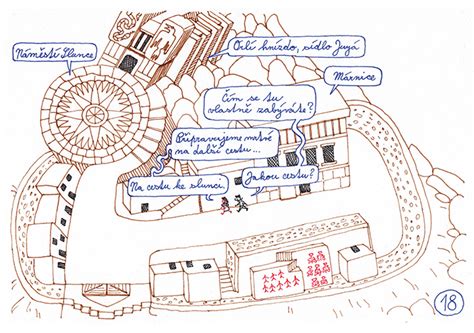 Náměstí Slunce
Orlí hnízdo, sídlo Juyá
Márnice
Čím se tu
vlastně zabýváte?
Připravujeme mrtvé
na další cestu...
Na cestu ke slunci.
Jakou cestu?
18